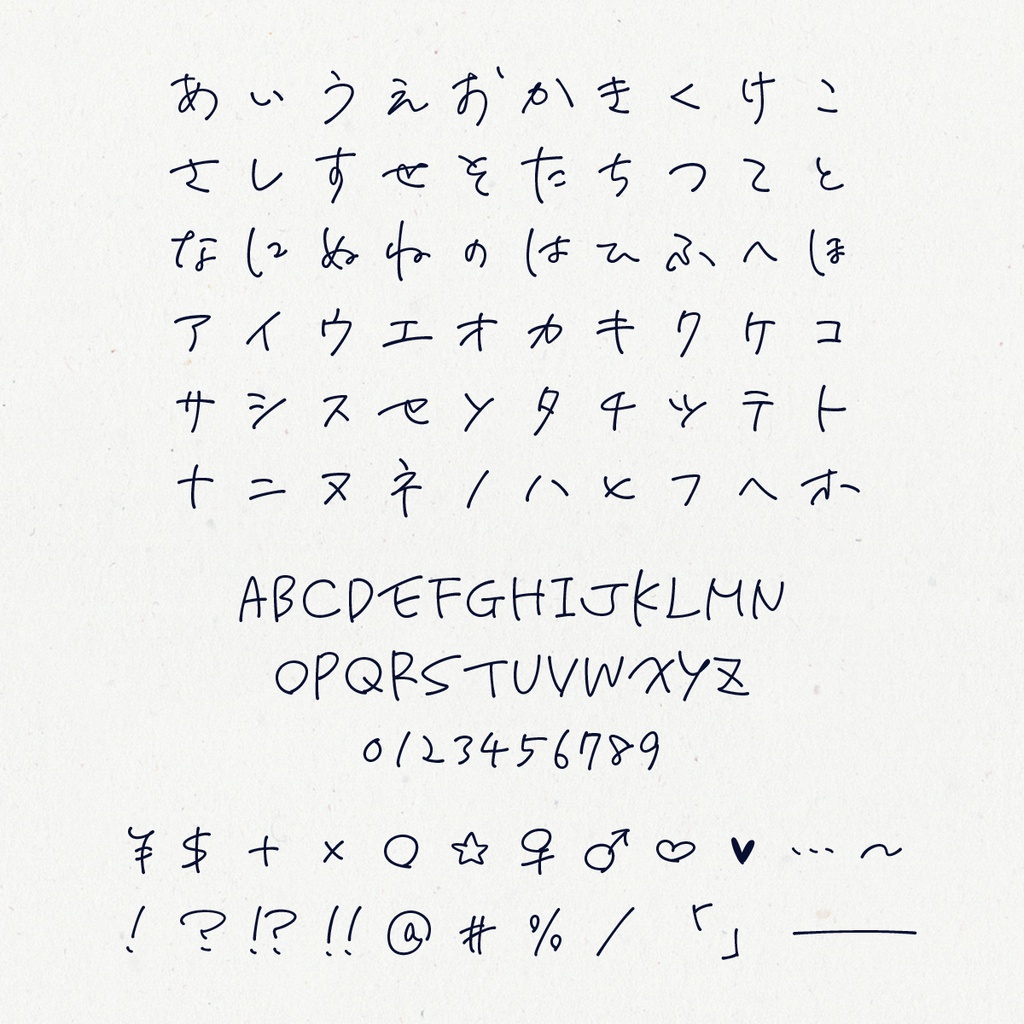 あいうえおかきくけこ
さしすせそたちつてと
なにぬねのはひふへほ
アイウエオカキクケコ
サシスセソタチツテト
ナニヌネノハヒフヘホ
ABCDEFGHIJKLMN
OPQRSTUVWXYZ
0123456789
¥ $ + × ○ ☆ ♀ ♂ ♡ ♥ … ~
! ? !? !! @ # % / 「」 —